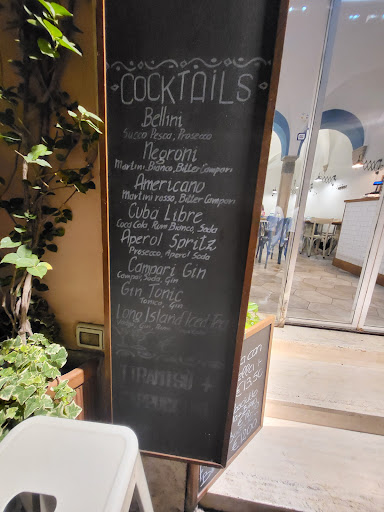 COCKTAILS
Bellini
Succo Pesca, Prosecco
Negroni
Martini Bianco, Bitter Campari
Americano
Martini rosso, Bitter Campari
Cuba Libre
Coca Cola, Rum Bianco, Soda
Aperol Spritz
Prosecco, Aperol Soda
Campari Gin
Campari, Soda, Gin
Gin Tonic
Tonica, Gin
Long Island Iced Tea
TIRAMISÙ +
CON